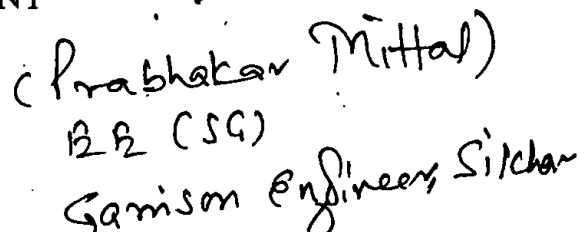 (Prabhakar Mittal)
EE (SG)
Garrison Engineer, Silchar